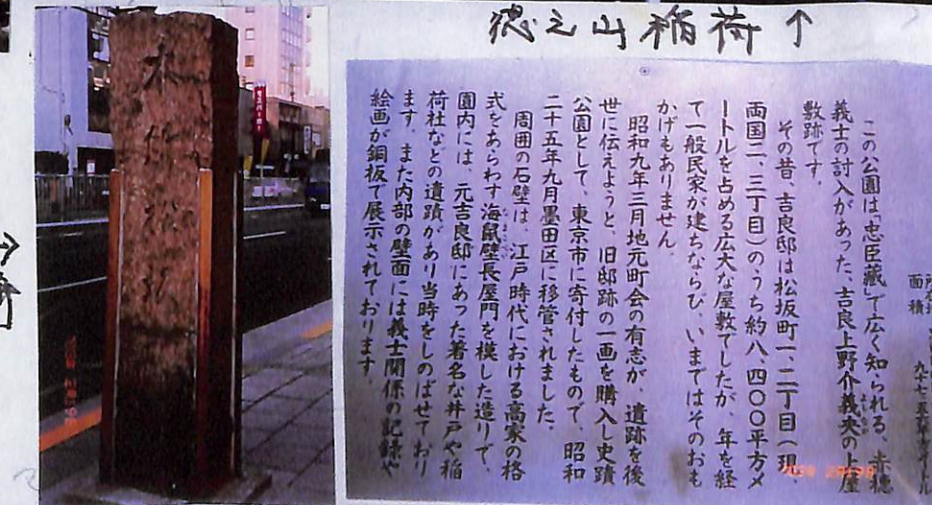 徳之山稲荷↑
この公園は「忠臣蔵」で広く知られる、赤穂
義士の討入があった、吉良上野介義央の上屋
敷跡です。
その昔、吉良邸は松坂町一、二丁目(現、
両国二、三丁目)のうち約八、四〇〇平方メ
ートルを占める広大な屋敷でしたが、年を経
て一般民家が建ちならび、いまではそのおも
かげもありません。
昭和九年三月地元町会の有志が、遺跡を後
世に伝えようと、旧邸跡の一画を購入し史蹟
公園として、東京市に寄付したもので、昭和
二十五年九月墨田区に移管されました。
周囲の石壁は、江戸時代における高家の格
式をあらわす海鼠壁長屋門を模した造りで、
園内には、元吉良邸にあった著名な井戸や稲
荷社などの遺蹟があり当時をしのばせており
ます。また内部の壁面には義士関係の記録や
絵画が銅板で展示されております。
面積